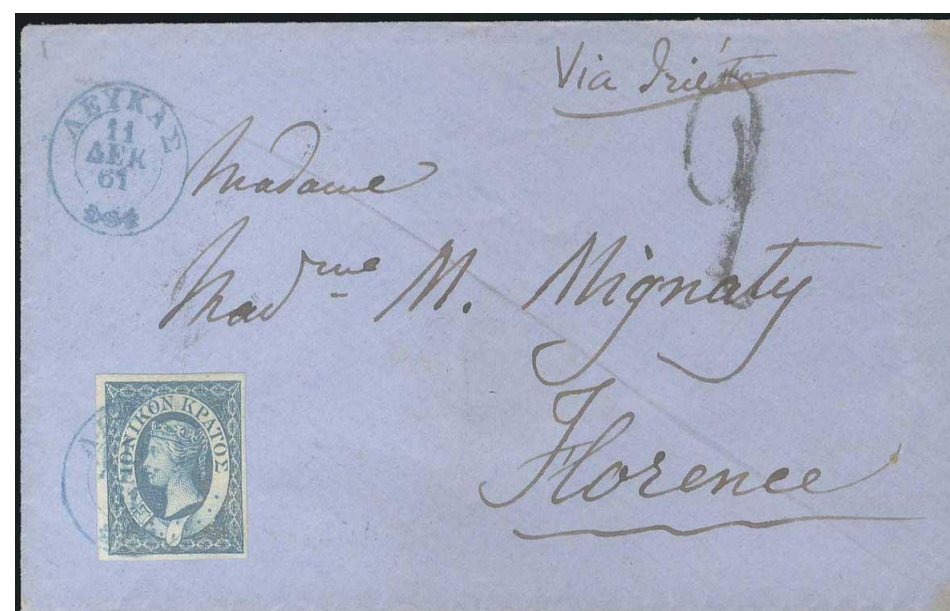 Via Trieste
ΛΕΥΚΑΣ
11
ΔΕΚ
61
9
Madame
Mad me M. Mignaty
Florence
ΙΟΝΙΚΟΝ ΚΡΑΤΟΣ